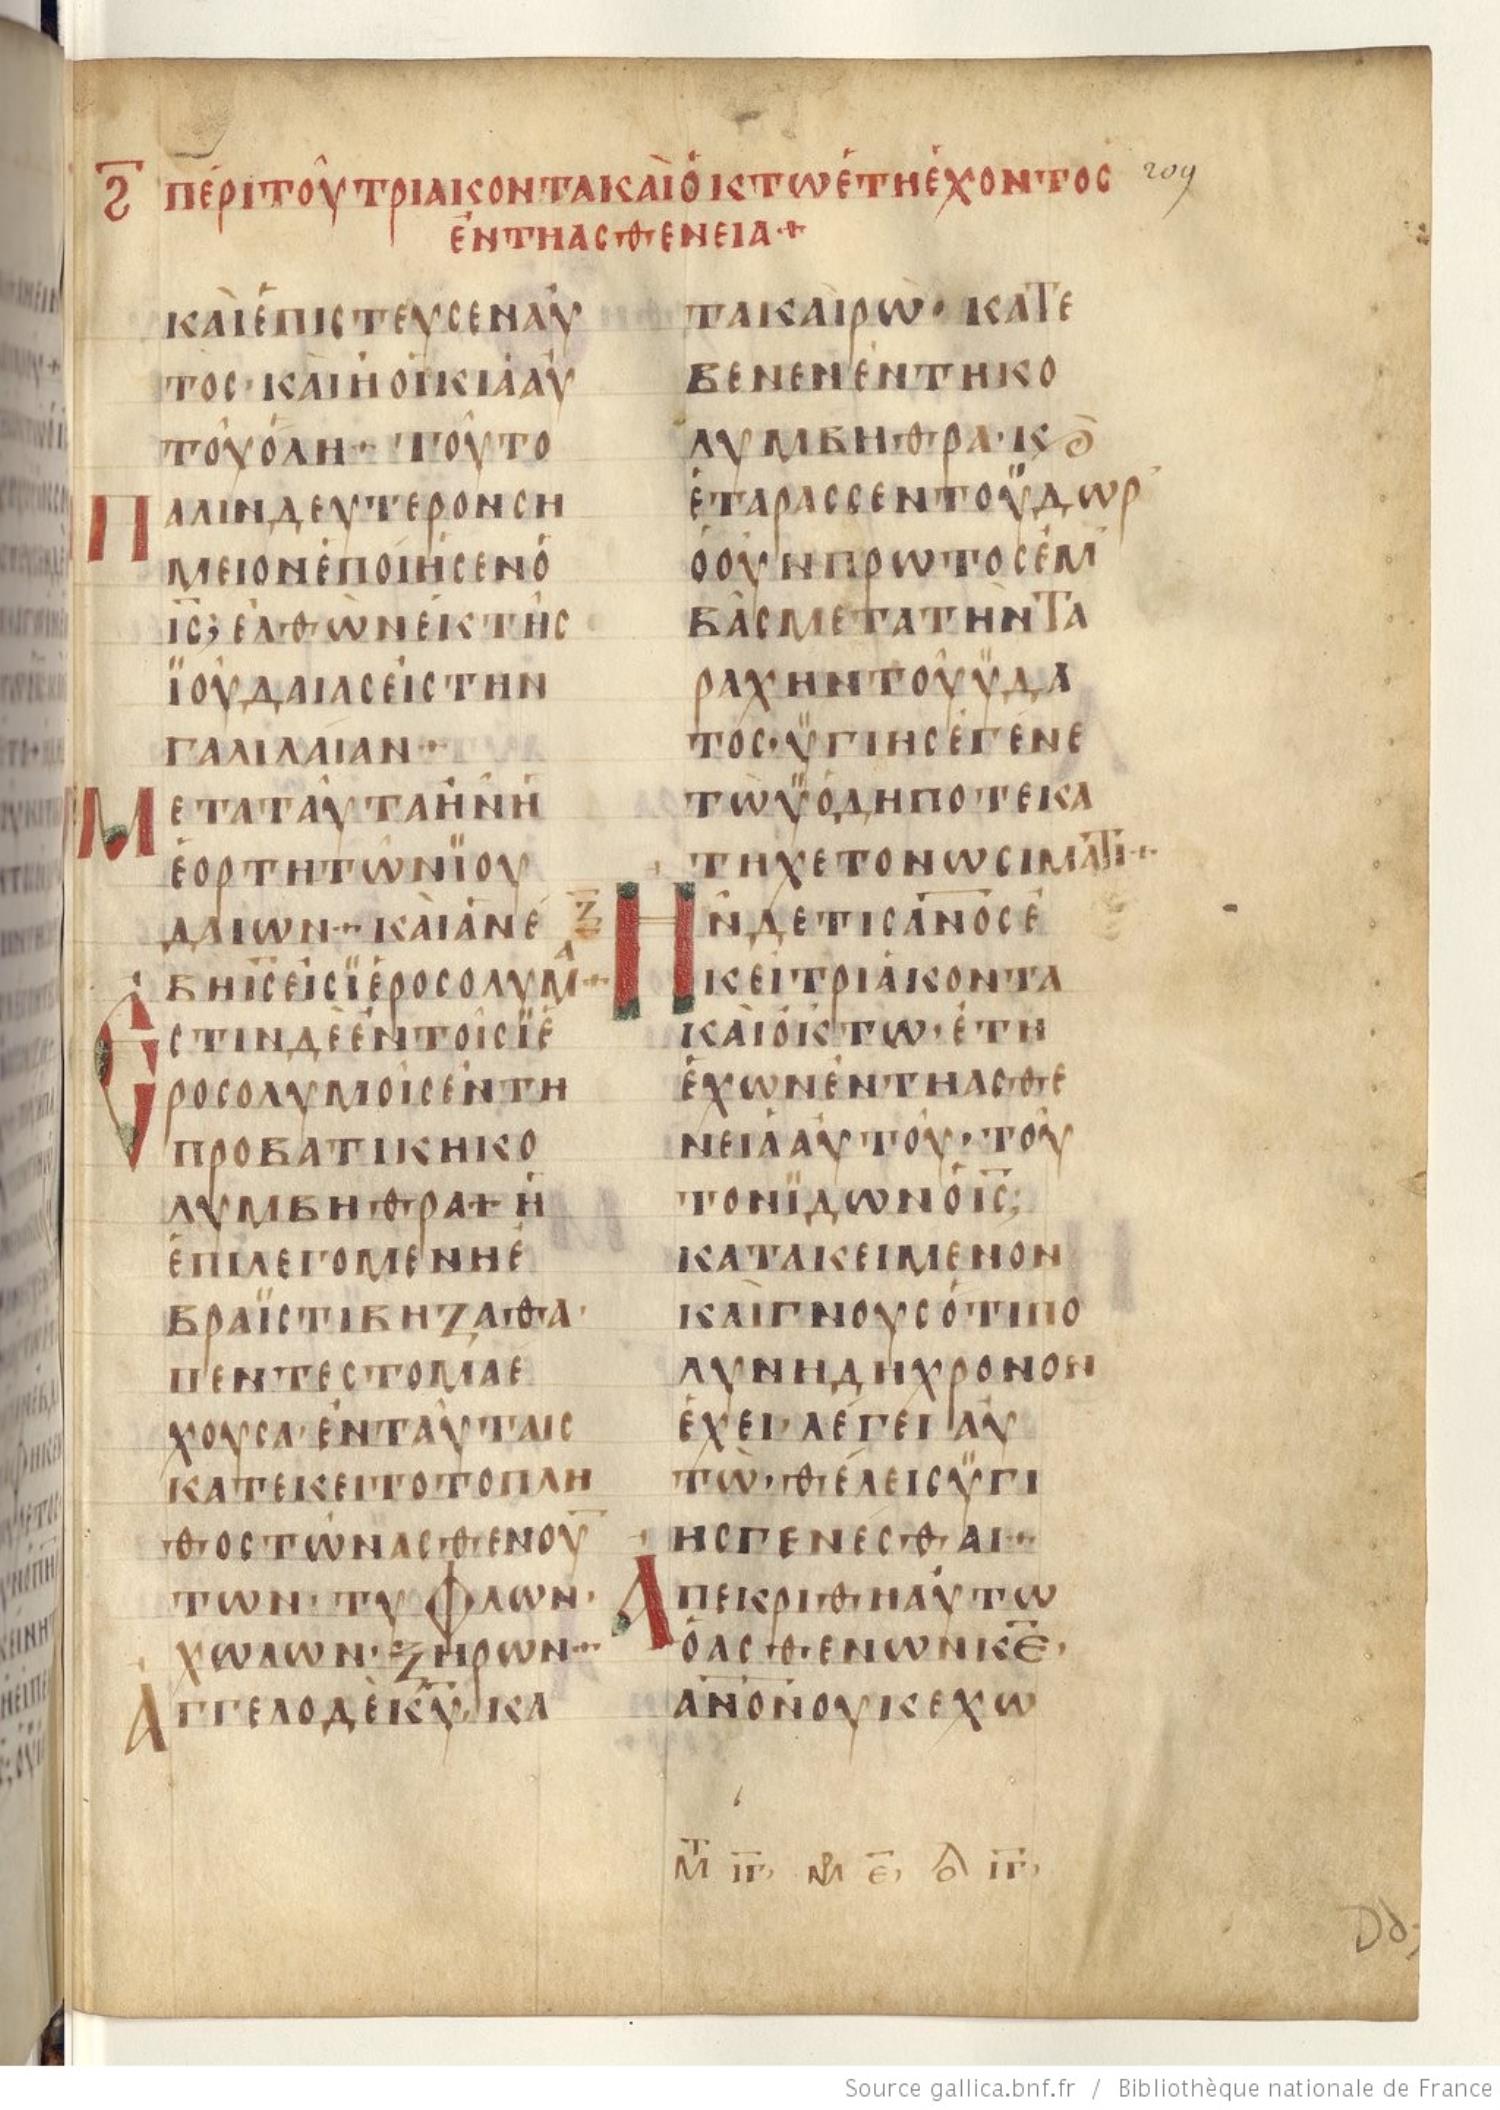 Ϛ ΠΕΡΙ ΤΟΥ ΤΡΙΑΚΟΝΤΑ ΚΑΙ ΟΚΤΩ ΕΤΗ ΕΧΟΝΤΟΣ 209
ΕΝ ΤΗ ΑΣΘΕΝΕΙΑ
ΚΑΙ ΕΠΙΣΤΕΥΣΕΝ ΑΥ
ΤΟΣ· ΚΑΙ Η ΟΙΚΙΑ ΑΥ
ΤΟΥ ΟΛΗ· ΤΟΥΤΟ
ΠΑΛΙΝ ΔΕΥΤΕΡΟΝ ΣΗ
ΜΕΙΟΝ ΕΠΟΙΗΣΕΝ Ο
ΙΣ; ΕΛΘΩΝ ΕΚ ΤΗΣ
ΪΟΥΔΑΙΑΣ ΕΙΣ ΤΗΝ
ΓΑΛΙΛΑΙΑΝ·
ΜΕΤΑ ΤΑΥΤΑ ΗΝ Η
ΕΟΡΤΗ ΤΩΝ ΪΟΥ
ΔΑΙΩΝ· ΚΑΙ ΑΝΕ
ΒΗ ΙΣ ΕΙΣ ΪΕΡΟΣΟΛΥΜΑ·
ΕΣΤΙΝ ΔΕ ΕΝ ΤΟΙΣ ΪΕ
ΡΟΣΟΛΥΜΟΙΣ ΕΝ ΤΗ
ΠΡΟΒΑΤΙΚΗ ΚΟ
ΛΥΜΒΗΘΡΑ Η
ΕΠΙΛΕΓΟΜΕΝΗ Ε
ΒΡΑΪΣΤΙ ΒΗΖΑΘΑ·
ΠΕΝΤΕ ΣΤΟΜΑΣ Ε
ΧΟΥΣΑ· ΕΝ ΤΑΥΤΑΙΣ
ΚΑΤΕΚΕΙΤΟ ΤΟ ΠΛΗ
ΘΟΣ ΤΩΝ ΑΣΘΕΝΟΥ
ΤΩΝ· ΤΥΦΛΩΝ·
ΧΩΛΩΝ· ΞΗΡΩΝ·
ΑΓΓΕΛΟ ΔΕ ΚΥ ΚΑ
ΤΑ ΚΑΙΡΩ· ΚΑΤΕ
ΒΕΝΕΝ ΕΝ ΤΗ ΚΟ
ΛΥΜΒΗΘΡΑ· Κ
ΕΤΑΡΑΣΣΕΝ ΤΟ ΥΔΩΡ
Ο ΟΥΝ ΠΡΩΤΟΣ ΕΜ
ΒΑΣ ΜΕΤΑ ΤΗΝ ΤΑ
ΡΑΧΗΝ ΤΟΥ ΥΔΑ
ΤΟΣ· ΥΓΙΗΣ ΕΓΕΝΕ
ΤΩ Ϋ Ο ΔΗΠΟΤΕ ΚΑ
ΤΗΧΕΤΟ ΝΩΣΙΜΑΤΙ·
Ζ ΗΝ ΔΕ ΤΙΣ ΑΝΟΣ Ε
ΚΕΙ ΤΡΙΑΚΟΝΤΑ
ΚΑΙ ΟΚΤΩ· ΕΤΗ
ΕΧΩΝ ΕΝ ΤΗ ΑΣΘΕ
ΝΕΙΑ ΑΥΤΟΥ· ΤΟΥ
ΤΟΝ ΪΔΩΝ Ο ΙΣ;
ΚΑΤΑΚΕΙΜΕΝΟΝ
ΚΑΙ ΓΝΟΥΣ ΟΤΙ ΠΟ
ΛΥΝ ΗΔΗ ΧΡΟΝΟΝ
ΕΧΕΙ· ΛΕΓΕΙ ΑΥ
ΤΩ· ΘΕΛΕΙΣ ΥΓΙ
ΗΣ ΓΕΝΕΣΘΑΙ·
ΑΠΕΚΡΙΘΗ ΑΥΤΩ
Ο ΑΣΘΕΝΩΝ ΚΕ·
ΑΝΟΝ ΟΥΚ ΕΧΩ
ΙΓ Ε ΙΓ